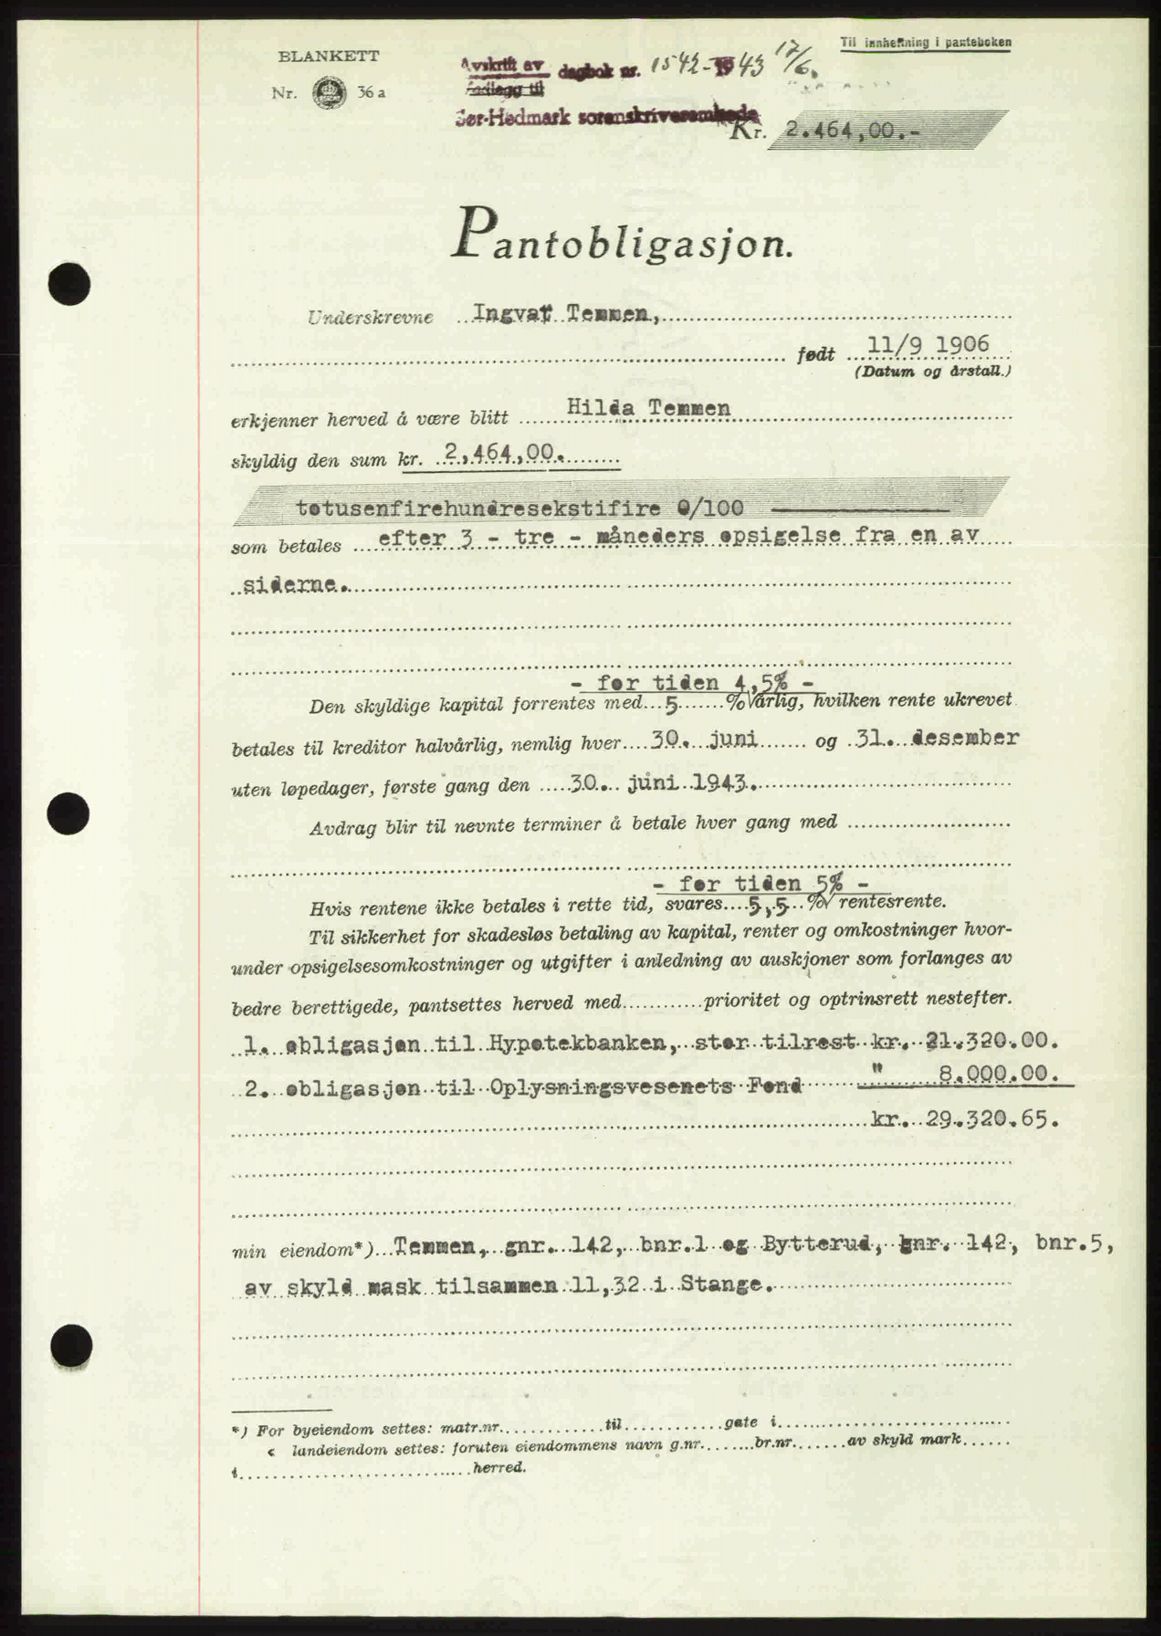 Til innheftning i panteboken
BLANKETT
Nr. 36 a
Avskrift av dagbok nr. 1542-1943 17/6.
Innlegg til
Sør-Hedmark sorenskriverembede
Kr. 2.464,00.-
Pantobligasjon.
Underskrevne Ingvar Temmen,
født 11/9 1906
(Datum og årstall.)
erkjenner herved å være blitt Hilda Temmen
skyldig den sum kr. 2,464,00.
totusenfirehundresekstifire 0/100
som betales efter 3 - tre - måneders opsigelse fra en av
siderne.
- for tiden 4,5% -
Den skyldige kapital forrentes med 5 % V årlig, hvilken rente ukrevet
betales til kreditor halvårlig, nemlig hver 30. juni og 31. desember
uten løpedager, første gang den 30. juni 1943.
Avdrag blir til nevnte terminer å betale hver gang med
- for tiden 5% -
Hvis rentene ikke betales i rette tid, svares 5,5 % V rentesrente.
Til sikkerhet for skadesløs betaling av kapital, renter og omkostninger hvor-
under opsigelsesomkostninger og utgifter i anledning av auskjoner som forlanges av
bedre berettigede, pantsettes herved med prioritet og optrinsrett nestefter.
1. obligasjon til Hypotekbanken, stor tilrest kr. 21.320.00.
2. obligasjon til Oplysningsvesenets Fond " 8.000.00.
kr. 29.320.65.
min eiendom*) Temmen, gnr. 142, bnr.1 og Bytterud, gnr. 142, bnr.5,
av skyld mask tilsammen 11,32 i Stange.
*) For byeiendom settes: matr.nr. til gate i
« landeiendom settes: foruten eiendommens navn g.nr. br.nr. av skyld mark
i herred.